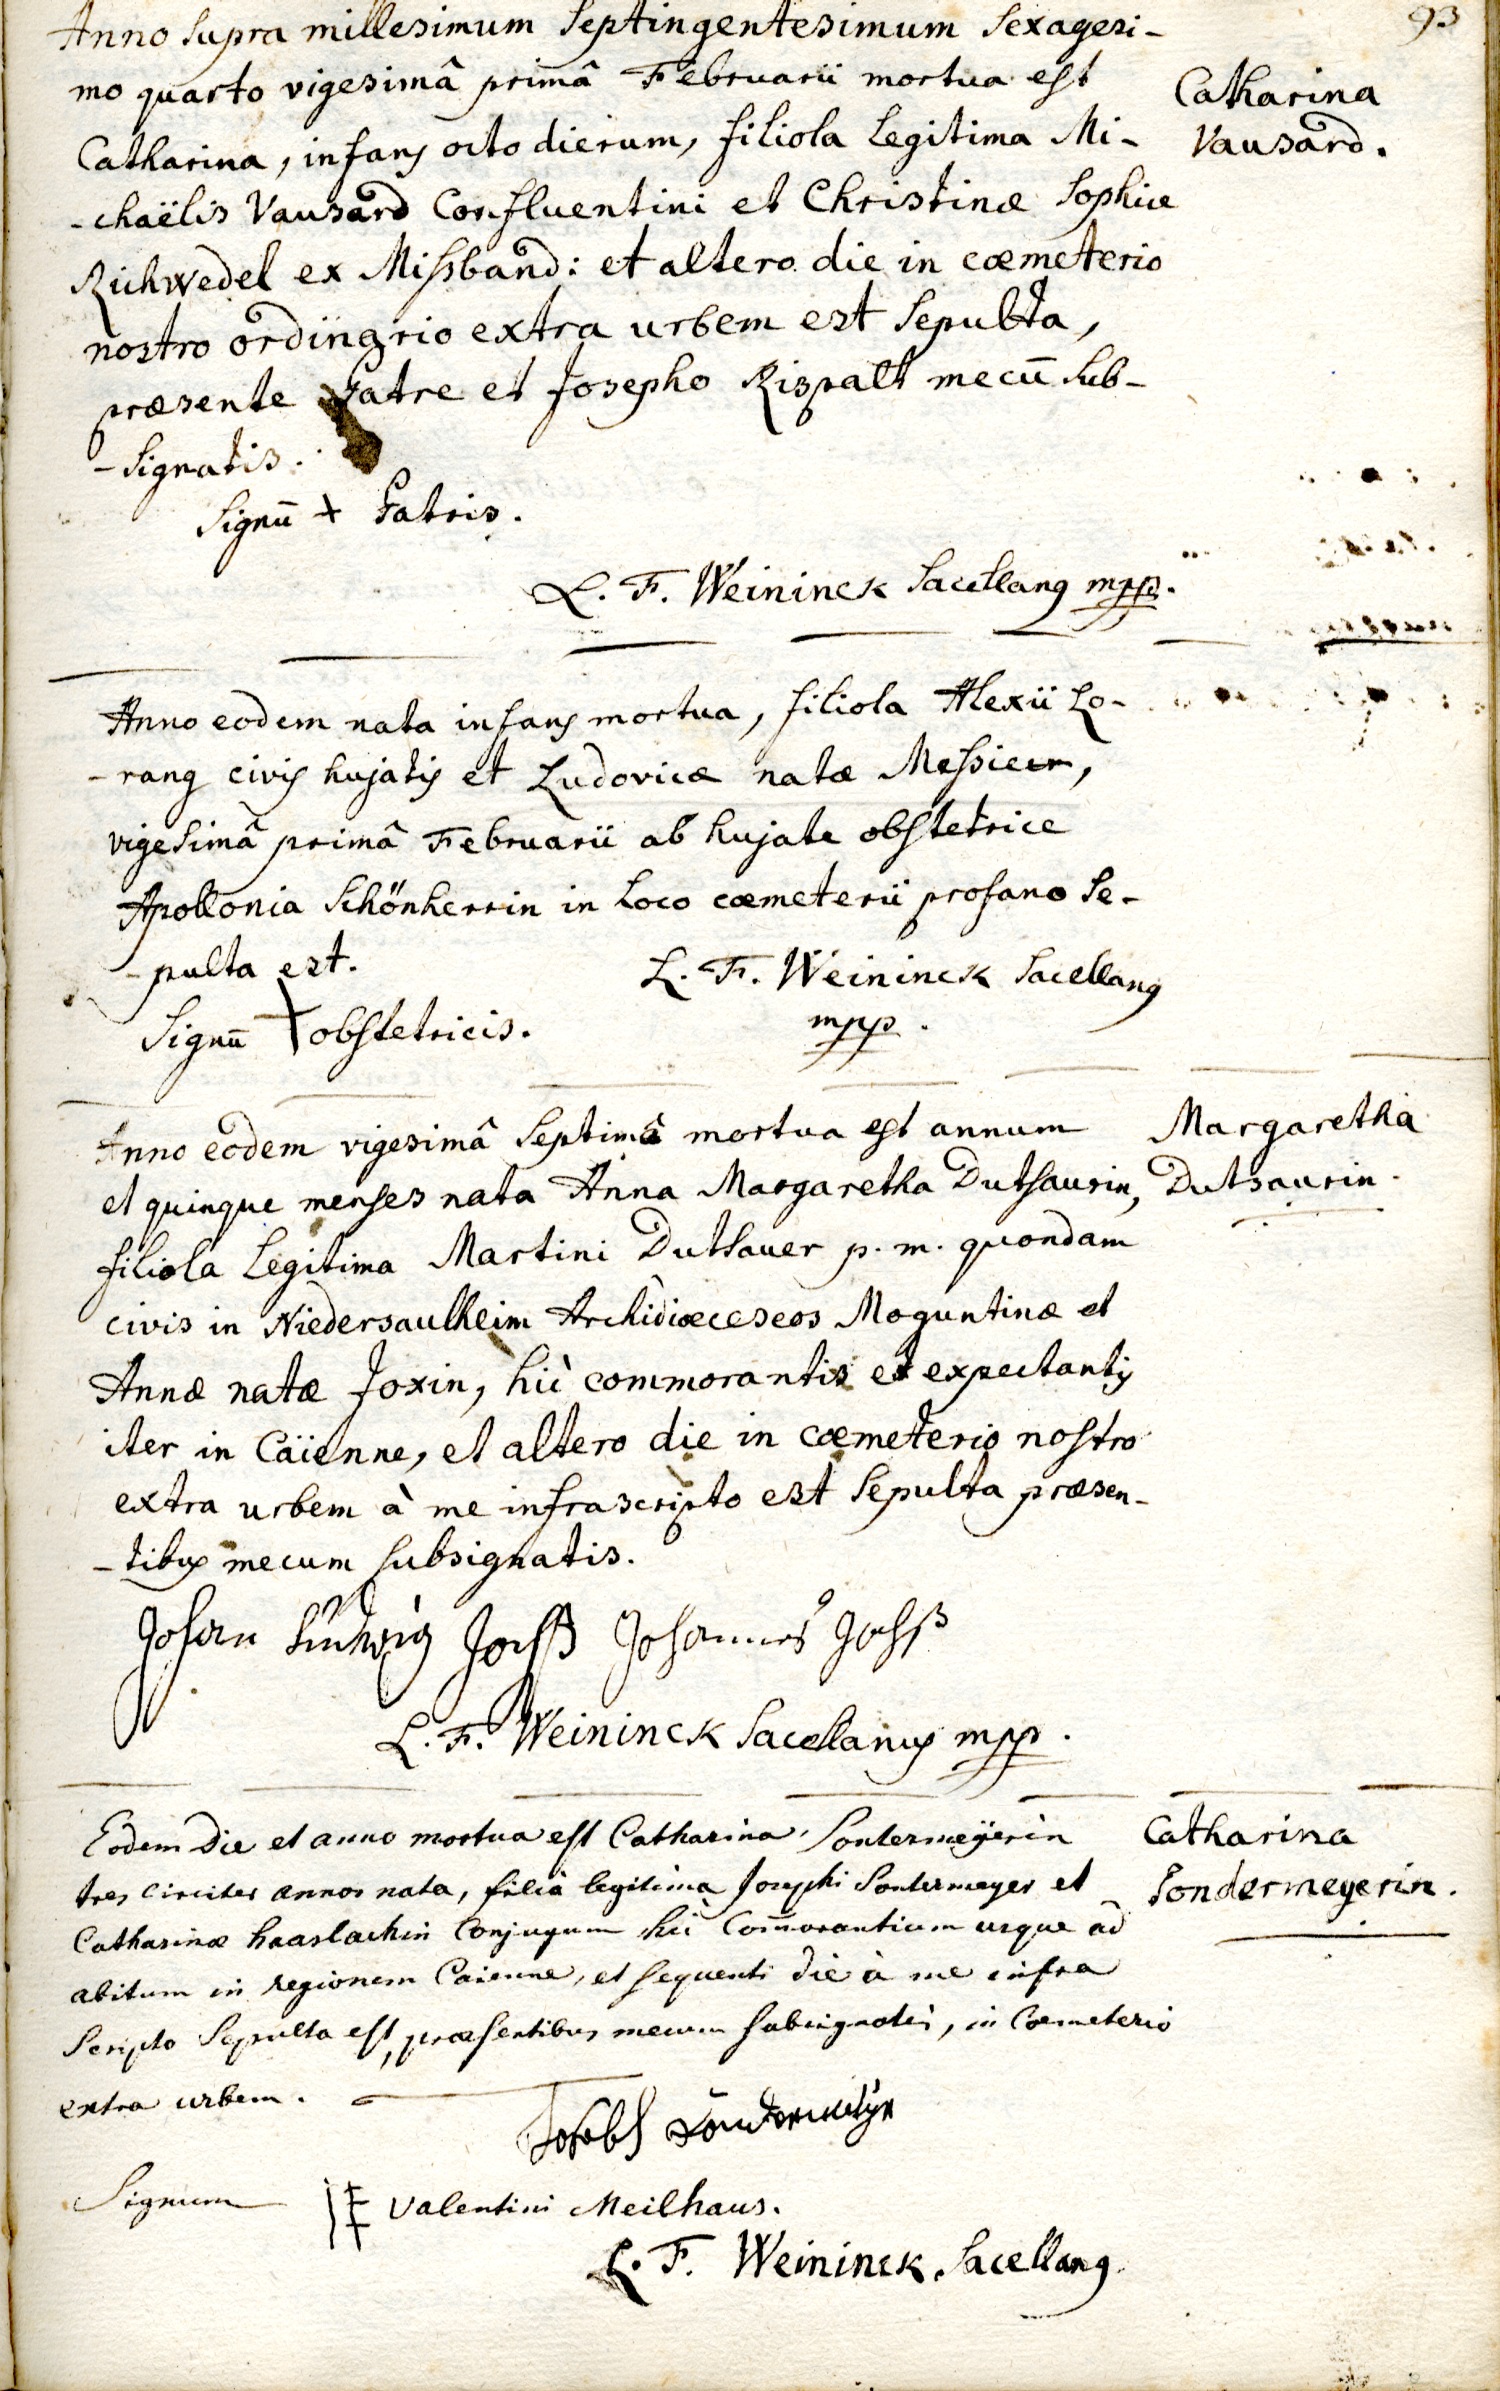 93
Anno supra millesimum septingentesimum sexagesi-
mo quarto vigesimâ primâ Februarii mortua est
Catharina, infans octo dierum, filiola legitima Mi-
-chaëlis Vausard Confluentini et Christinæ Sophiæ
Richwedel ex Missband: et altero die in cœmeterio
nostro ordinario extra urbem est sepulta,
præsente Patre et Josepho Rispalt mecū sub-
-signatis.
Signū + Patris.
L. F. Weininck Sacellanus mpp.
Catharina
Vausard.
Anno eodem nata infans mortua, filiola Alexii Lo-
-rang civis hujatis et Ludovicæ natæ Messieur,
vigesimâ primâ Februarii ab hujate obstetrice
Apollonia Schönherrin in loco cœmeterii profano se-
-pulta est.
L. F. Weininck Sacellanus
mpp.
Signū + obstetricis.
Anno eodem vigesimâ septimâ mortua est annum
et quinque menses nata Anna Margaretha Dutsaurin,
filiola legitima Martini Dutsauer p. m. quondam
civis in Niedersaulheim Archidiœceseos Moguntinæ et
Annæ natæ Joxin, hìc commorantis et expectantis
iter in Caïenne, et altero die in cœmeterio nostro
extra urbem à me infrascripto est sepulta præsen-
-tibus mecum subsignatis.
Margaretha
Dutsaurin.
Johan Ludwig Jochß Johannes Jochß
L. F. Weininck Sacellanus mpp.
Eodem die et anno mortua est Catharina Sontermeÿerin
tres circiter annos nata, filia legitima Josephi Sontermeyer et
Catharinæ haaslachin Conjugum hìc Com̄orantium usque ad
abitum in regionem Caienne, et sequenti die à me infra
Scripto Sepulta est, præsentibus mecum subsignatis, in Cœmeterio
extra urbem.
Catharina
Sondermeyerin.
Joseph
Signum Valentini Meilhaus.
L. F. Weininck Sacellanus